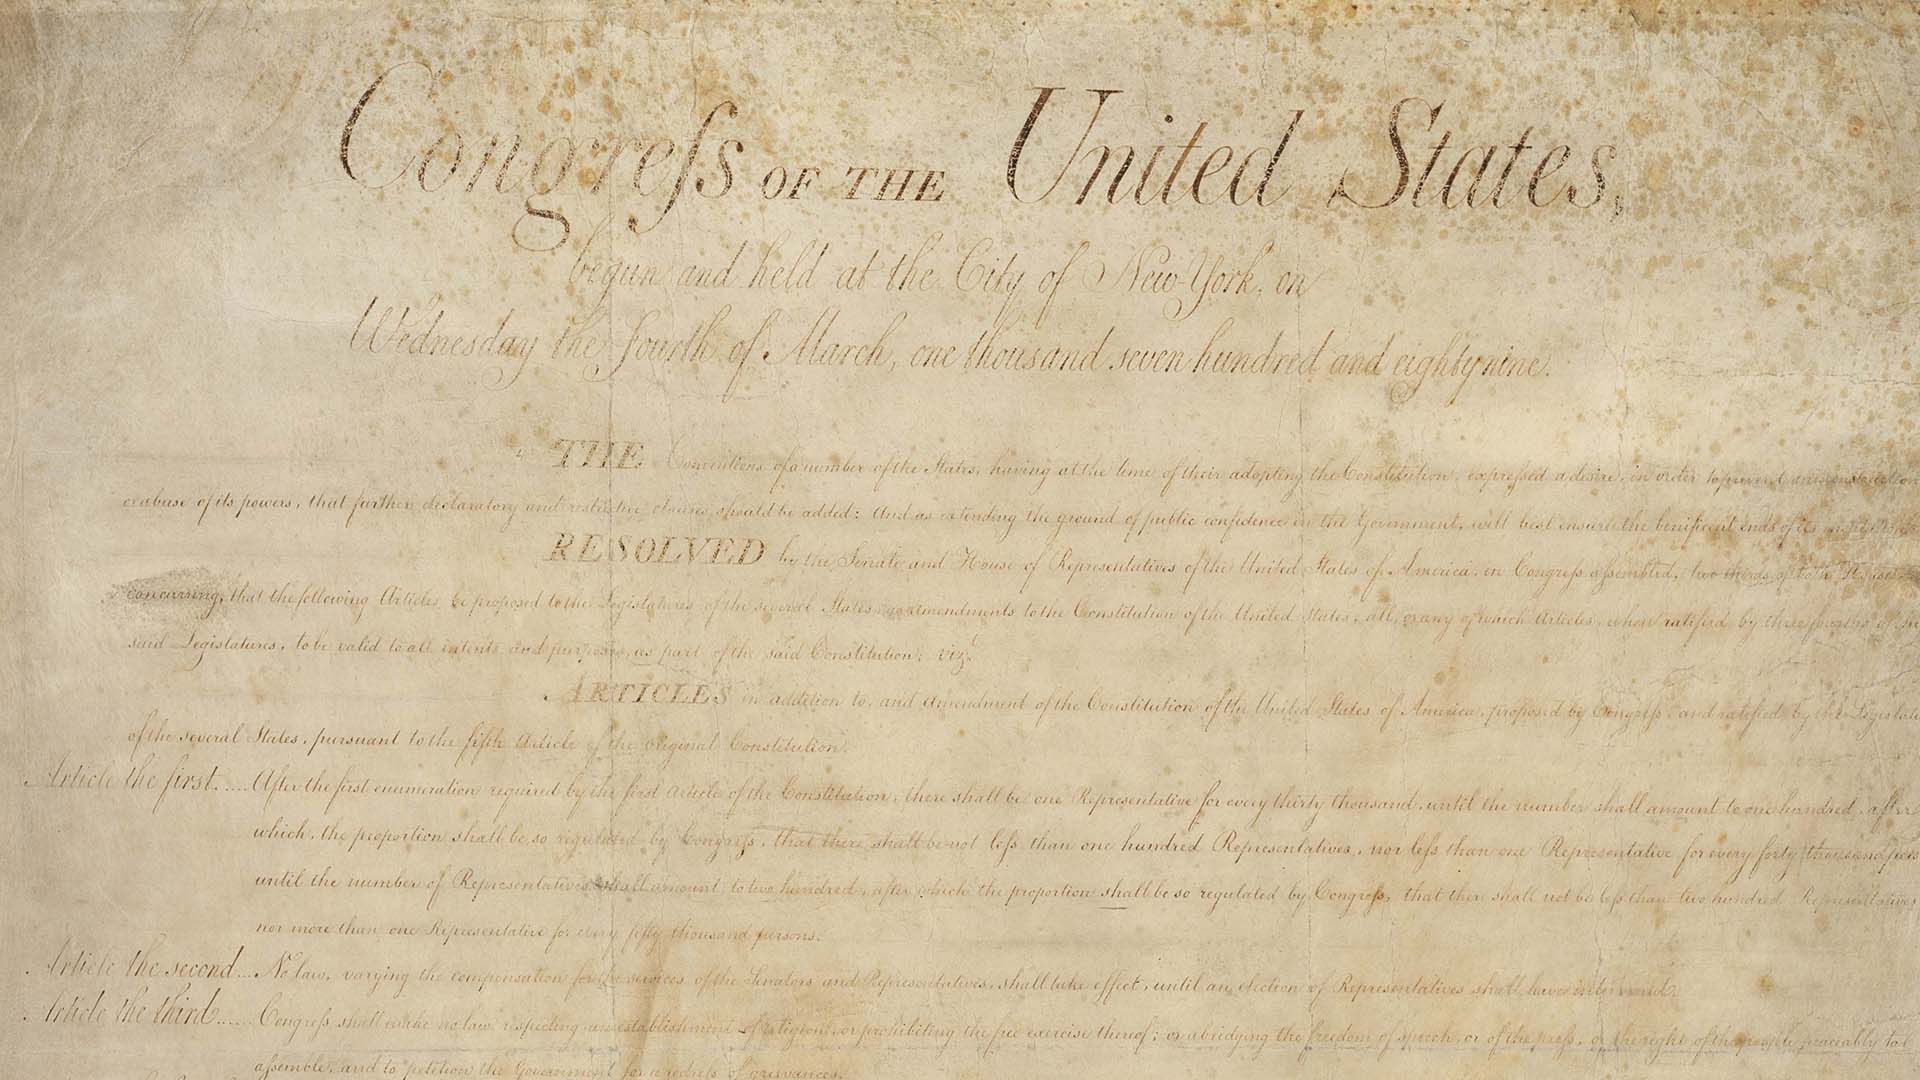 Congreſs OF THE United States,
begun and held at the City of New-York, on
Wednesday the fourth of March, one thousand seven hundred and eighty nine.
THE Conventions of a number of the States, having at the time of their adopting the Constitution, expreſsed a desire, in order to prevent misconstruction
or abuse of its powers, that further declaratory and restrictive clauses should be added: And as extending the ground of public confidence in the Government, will best ensure the benificent ends of its
RESOLVED by the Senate and House of Representatives of the United States of America, in Congreſs aſsembled, two thirds of both Houses
concurring, that the following Articles be proposed to the Legislatures of the several States, as amendments to the Constitution of the United States, all, or any of which Articles, when ratified by three fourths of the
said Legislatures, to be valid to all intents and purposes, as part of the said Constitution; vizt
ARTICLES in addition to, and Amendment of the Constitution of the United States of America, proposed by Congreſs, and ratified by the Legislatu
of the several States, pursuant to the fifth Article of the original Constitution.
Article the first..... After the first enumeration required by the first Article of the Constitution, there shall be one Representative for every thirty thousand, until the number shall amount to one hundred, after
which, the proportion shall be so regulated by Congreſs, that there shall be not leſs than one hundred Representatives, nor leſs than one Representative for every forty thousand persons,
until the number of Representatives shall amount to two hundred, after which the proportion shall be so regulated by Congreſs, that there shall not be leſs than two hundred Representatives,
nor more than one Representative for every fifty thousand persons.
Article the second... No law, varying the compensation for the services of the Senators and Representatives, shall take effect, until an election of Representatives shall have intervened.
Article the third..... Congreſs shall make no law respecting an establishment of religion, or prohibiting the free exercise thereof; or abridging the freedom of speech, or of the press, or the right of the people peaceably to
aſsemble, and to petition the Government for a redreſs of grievances.